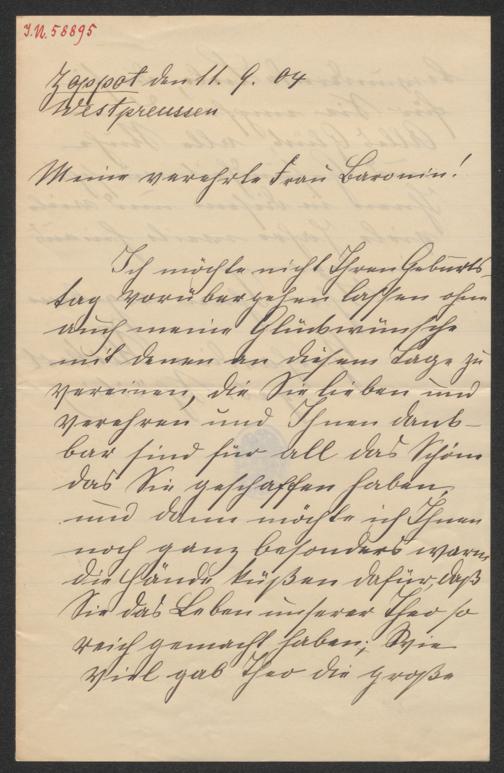 I.N. 58895
Zoppot den 11. 9. 04
Westpreussen
Meine verehrte Frau Baronin!
Ich möchte nicht Ihren Geburts-
tag vorübergehen lassen ohne
auch meine Glückwünsche
mit denen an diesem Tage zu
vereinen, die Sie lieben und
verehren und Ihnen dank-
bar sind für all das Schöne
das Sie geschaffen haben,
und dann möchte ich Ihnen
noch ganz besonders warm
die Hände küßen dafür, daß
Sie das Leben unserer Theo so
reich gemacht haben; Wie
viel gab Theo die große